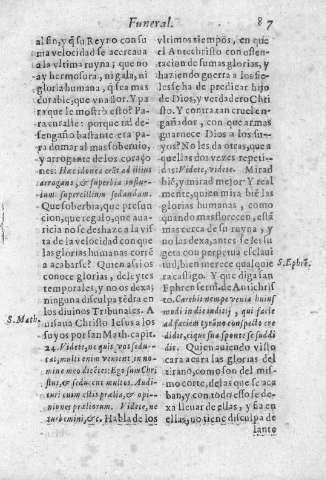 Funeral. 87
al fin, y q̃ su Reyno con su
ma velocidad se acercaua
a la vltima ruyna; que no
ay hermosura, ni gala, ni
gloria humana, q̃ sea mas
durable, que vna flor. Y pa
ra que le mostrò esto? Pa
ra curalle: porque tal de-
sengaño bastante era pa
ra domar al mas soberuio,
y arrogante de los coraço
nes: Hæc idonea erãt ad illius
arrogans, & superbia influ-
tum supercillium sedandum.
Que soberbia, que presun
cion, que regalo, que aua-
ricia no se deshaze a la vis
ta de la velocidad con que
las glorias humanas corrẽ
a acabarse? Quien assi os
conoce glorias, deleytes
temporales, y no os dexa;
ninguna disculpa tẽdra en
los diuinos Tribunales. A
uisaua Christo Iesus a los
S. Math.
suyos por san Math. capit.
24. Videte, ne quis vos sedu-
cat, multi enim venient in no-
mine meo dicẽtes: Ego sum Chri
stus, & seducent multos. Audi-
turi enim estis prælia, & opi-
niones præliorum. Videte, ne
turbemini, &c. Habla de los
vltimos tiempos, en que
el Antechristo con osten-
tacion de sumas glorias, y
haziendo guerra a los fie-
les se ha de predicar hijo
de Dios, y verdadero Chri
sto. Y contra tan cruel en
gañador, con que armas
guarnece Dios a los su-
yos? No les da otras, que a
quellas dos vezes repeti-
das: Videte, videte. Mirad
biẽ, y mirad mejor. Y real
mente, quien mira biẽ las
glorias humanas, como
quando mas florecen, estã
mas cerca de su ruyna, y
no las dexa, antes se les su
geta con perpetua esclaui
tud, bien merece qualquie
ra castigo. Y que diga san
S. Ephrẽ.
Ephren serm. de Antichris
to. Carebit nempe venia huius
modi in die iudicij, qui facie
ad faciem tyrãno conspecto cre
didit, eique sua sponte se subdi
dit. Quien auiendo visto
cara a cara las glorias del
tirano, como son del mis-
mo corte, de las que se aca
ban, y con todo esso se de-
xa lleuar de ellas, y fia en
ellas, no tiene disculpa de
lante